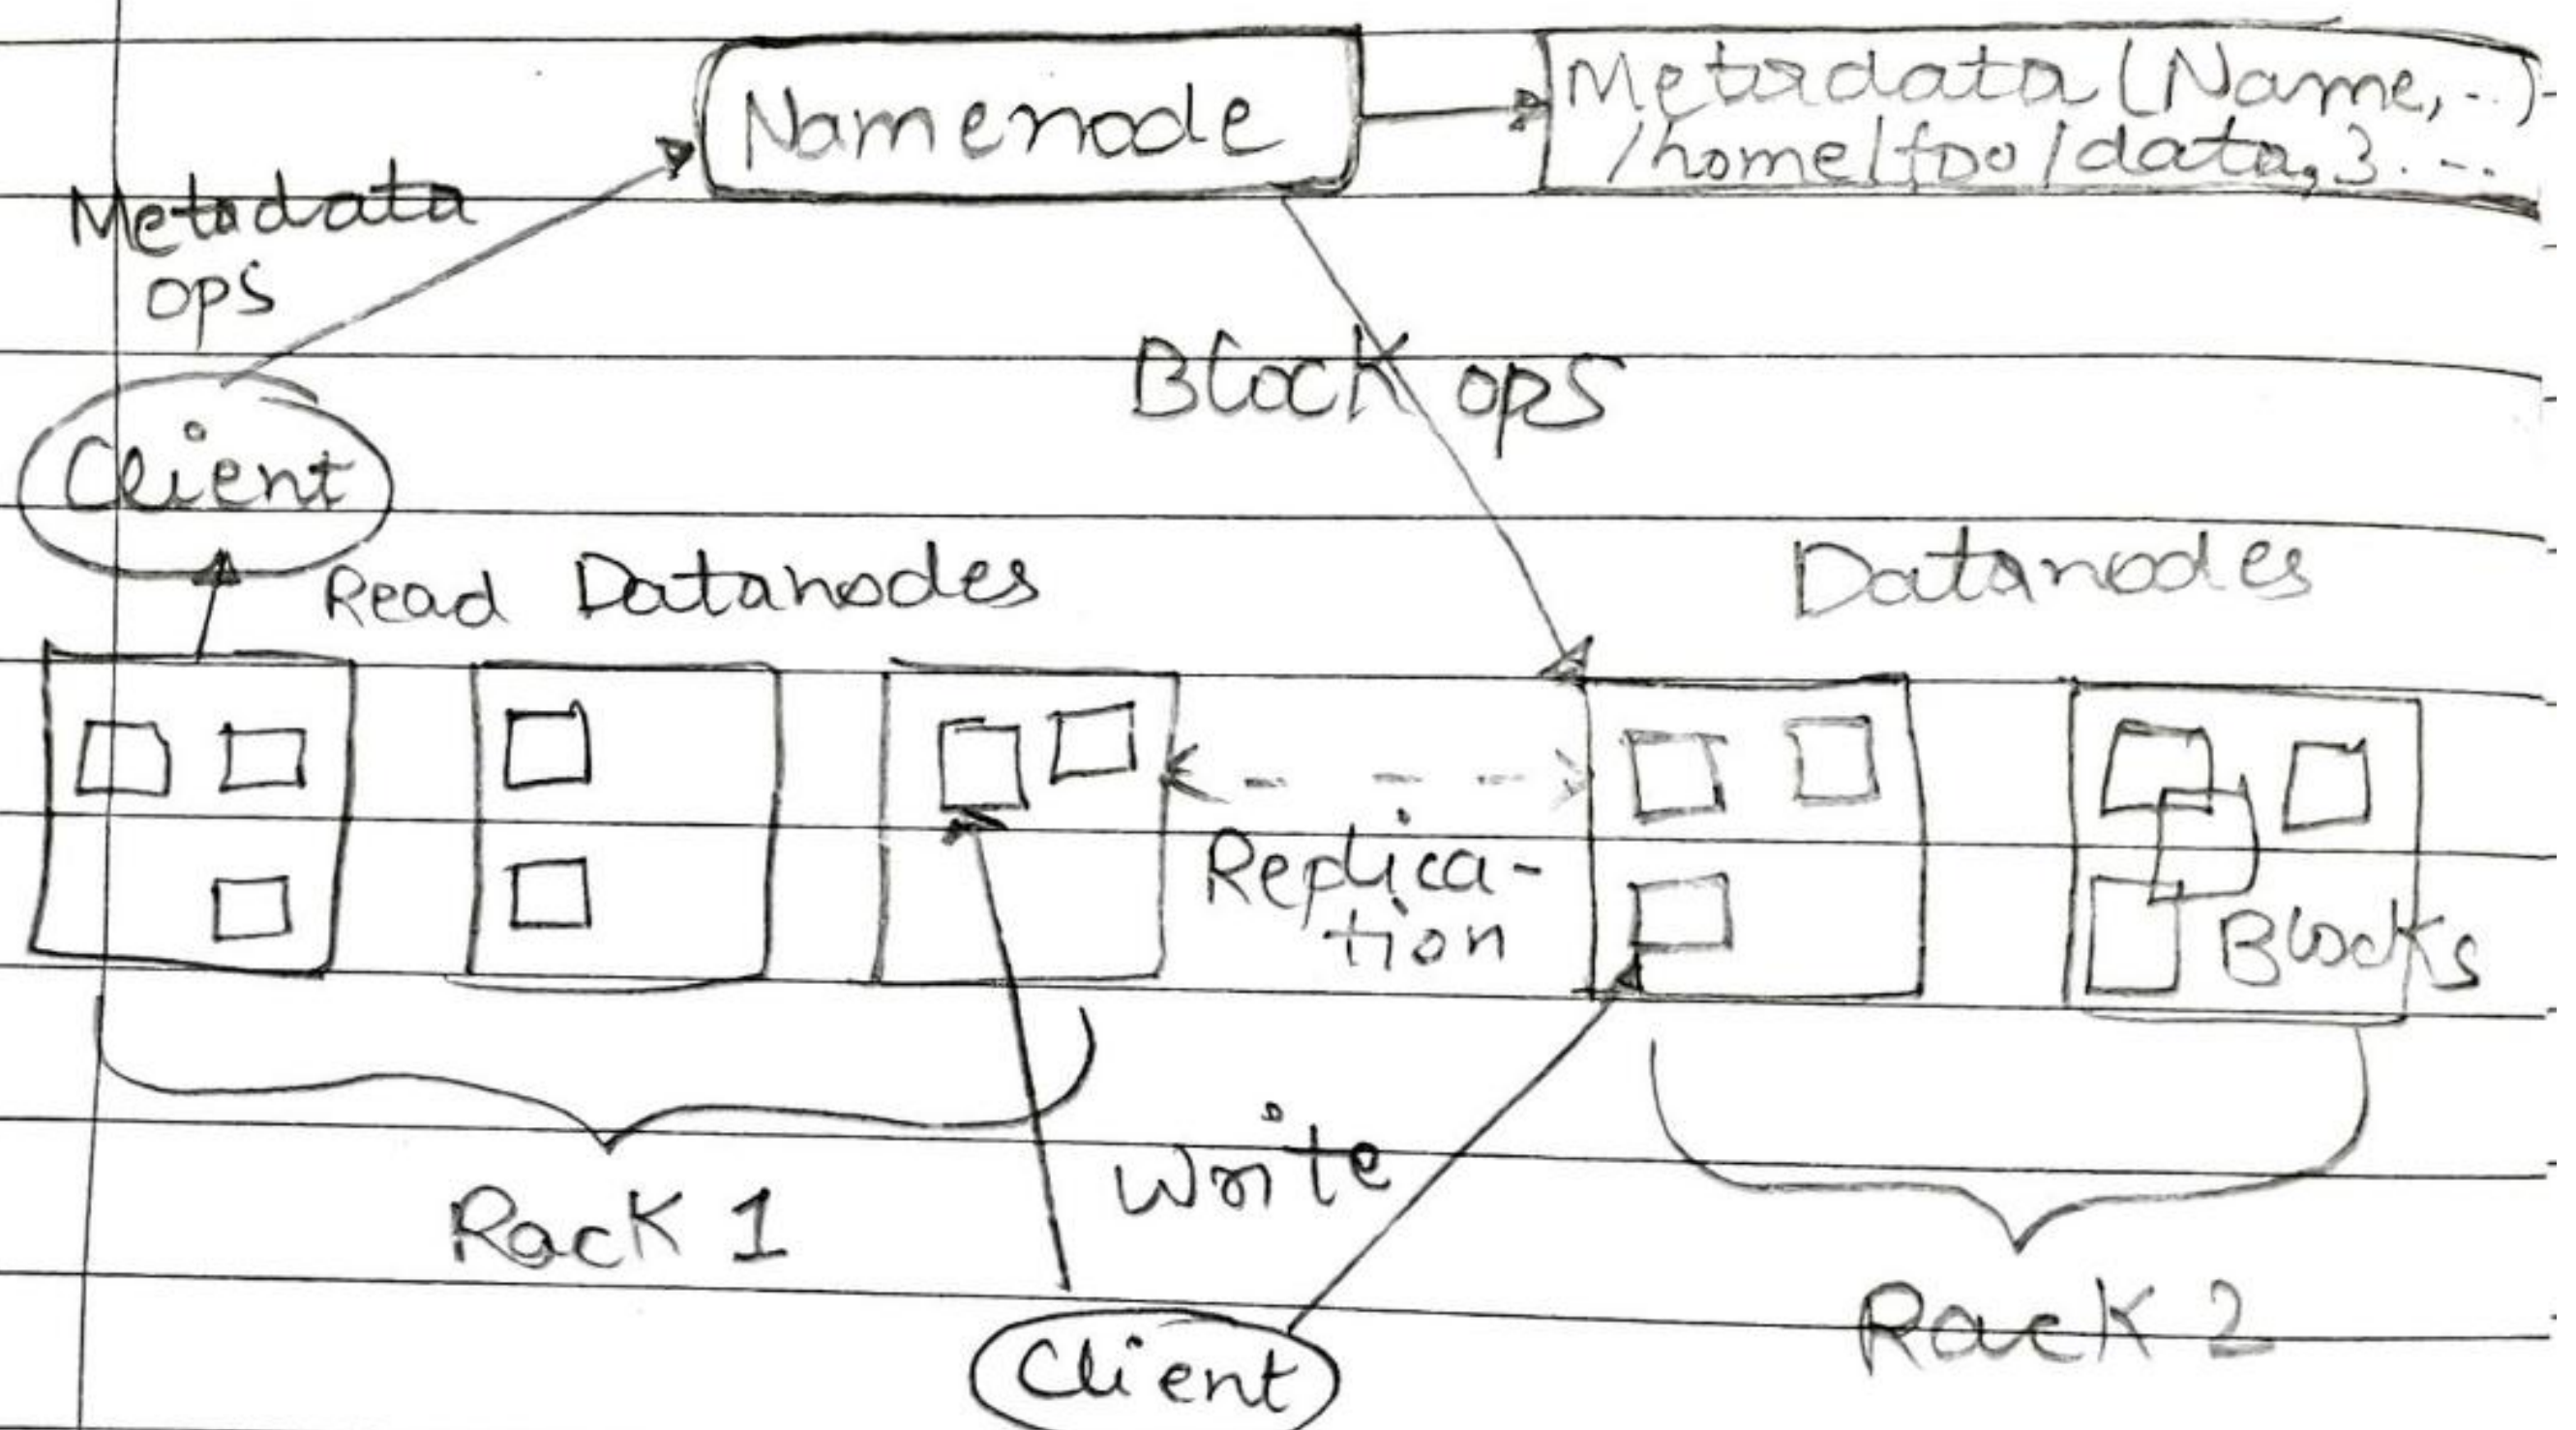 Namenode
Metadata (Name, ..)
/home/foo/data, 3. ...
Metadata
ops
Block ops
Client
Read Datanodes
Datanodes
Replica-
tion
Blocks
Write
Rack 1
Rack 2
Client